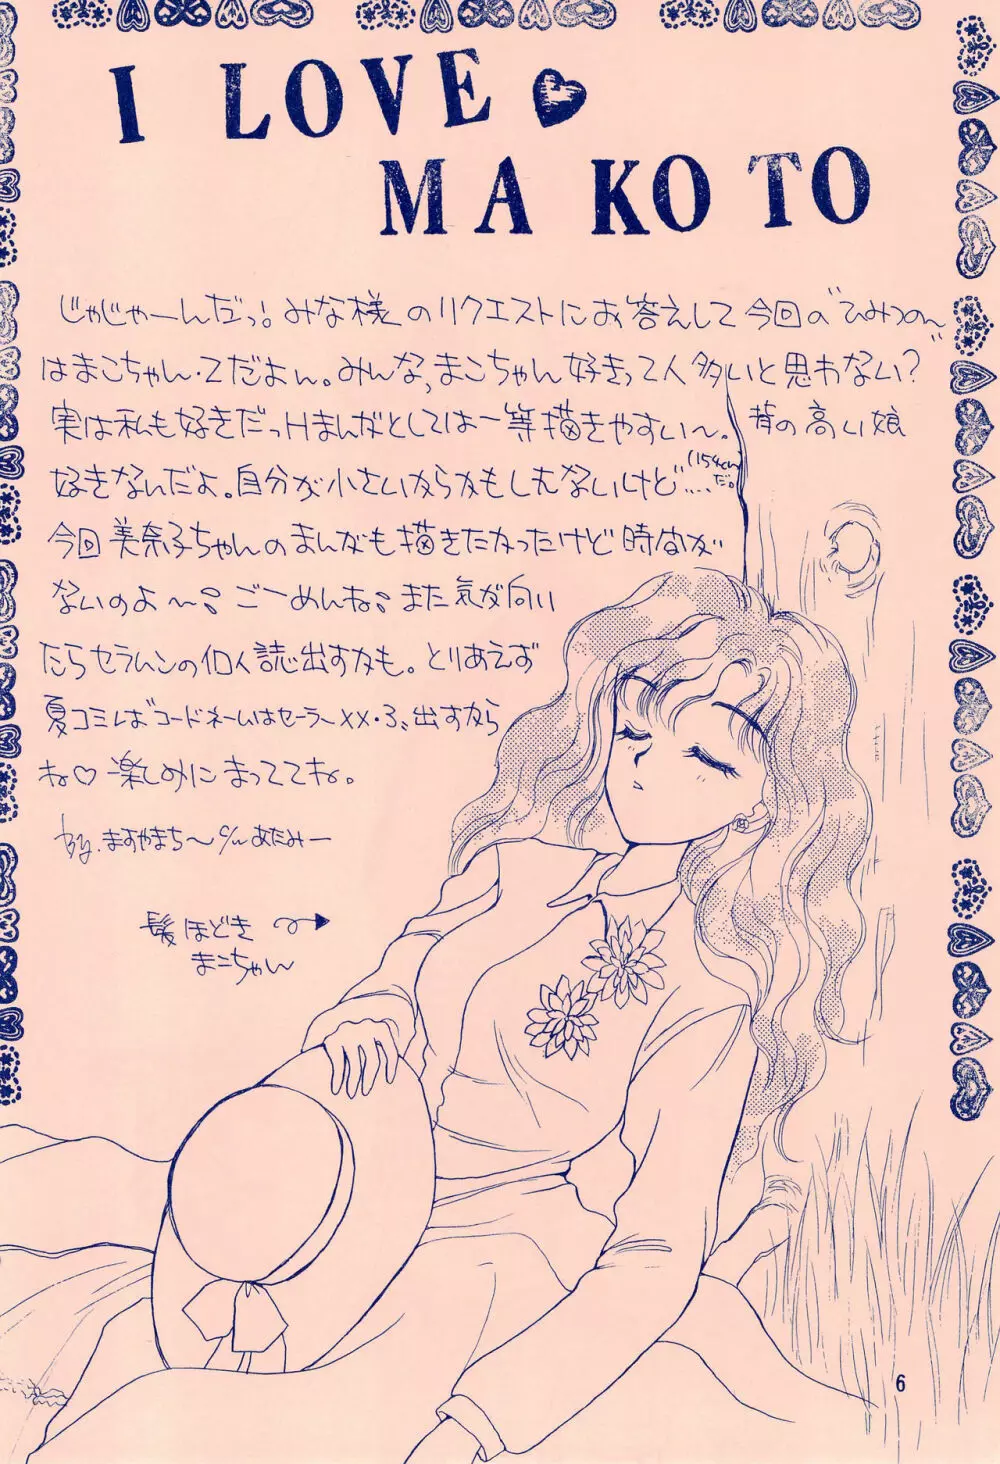 I LOVE
MAKOTO
じゃじゃーんだっ! みな様のリクエストにお答えして今回の"ひみつのん"
はまこちゃん・Zだよん。みんな、まこちゃん好きって人多いと思わない?
実は私も好きだっHまんがとしては一等描きやすい〜。背の高い娘
好きなんだよ。自分が小さいからかもしんないけど……(154cmだ。)
今回美奈子ちゃんのまんがも描きたかったけど時間が
ないのよ〜。ごーめんね。また気が向い
たらセラムンの個人誌出すかも。とりあえず
夏コミは"コードネームはセーラーXX・3"出すから
ね♡楽しみにまっててね。
By.ますやまち〜
髪ほどき
まこちゃん
6